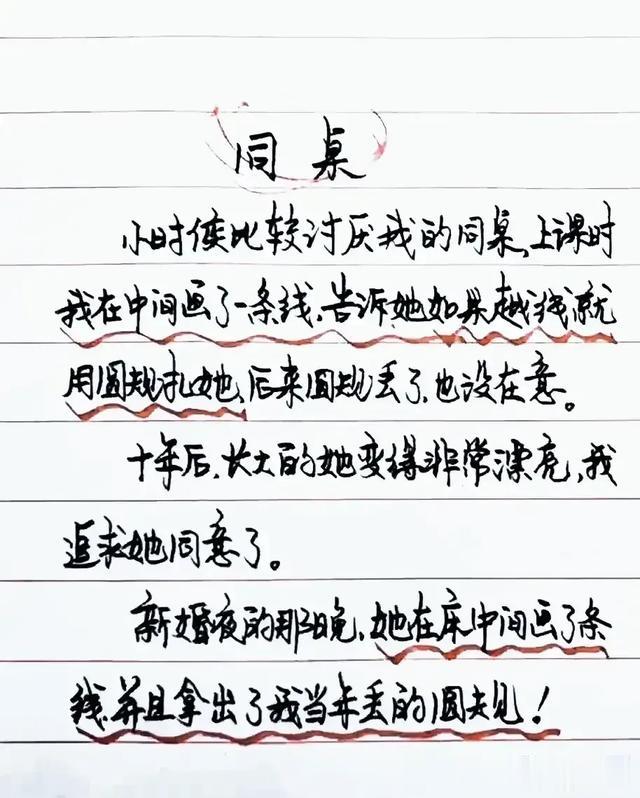 同桌
小时候比较讨厌我的同桌,上课时
我在中间画了一条线,告诉她如果越线就
用圆规扎她,后来圆规丢了,也没在意。
十年后,长大后的她变得非常漂亮,我
追求她同意了。
新婚夜的那晚,她在床中间画了条
线,并且拿出了我当年丢的圆规!